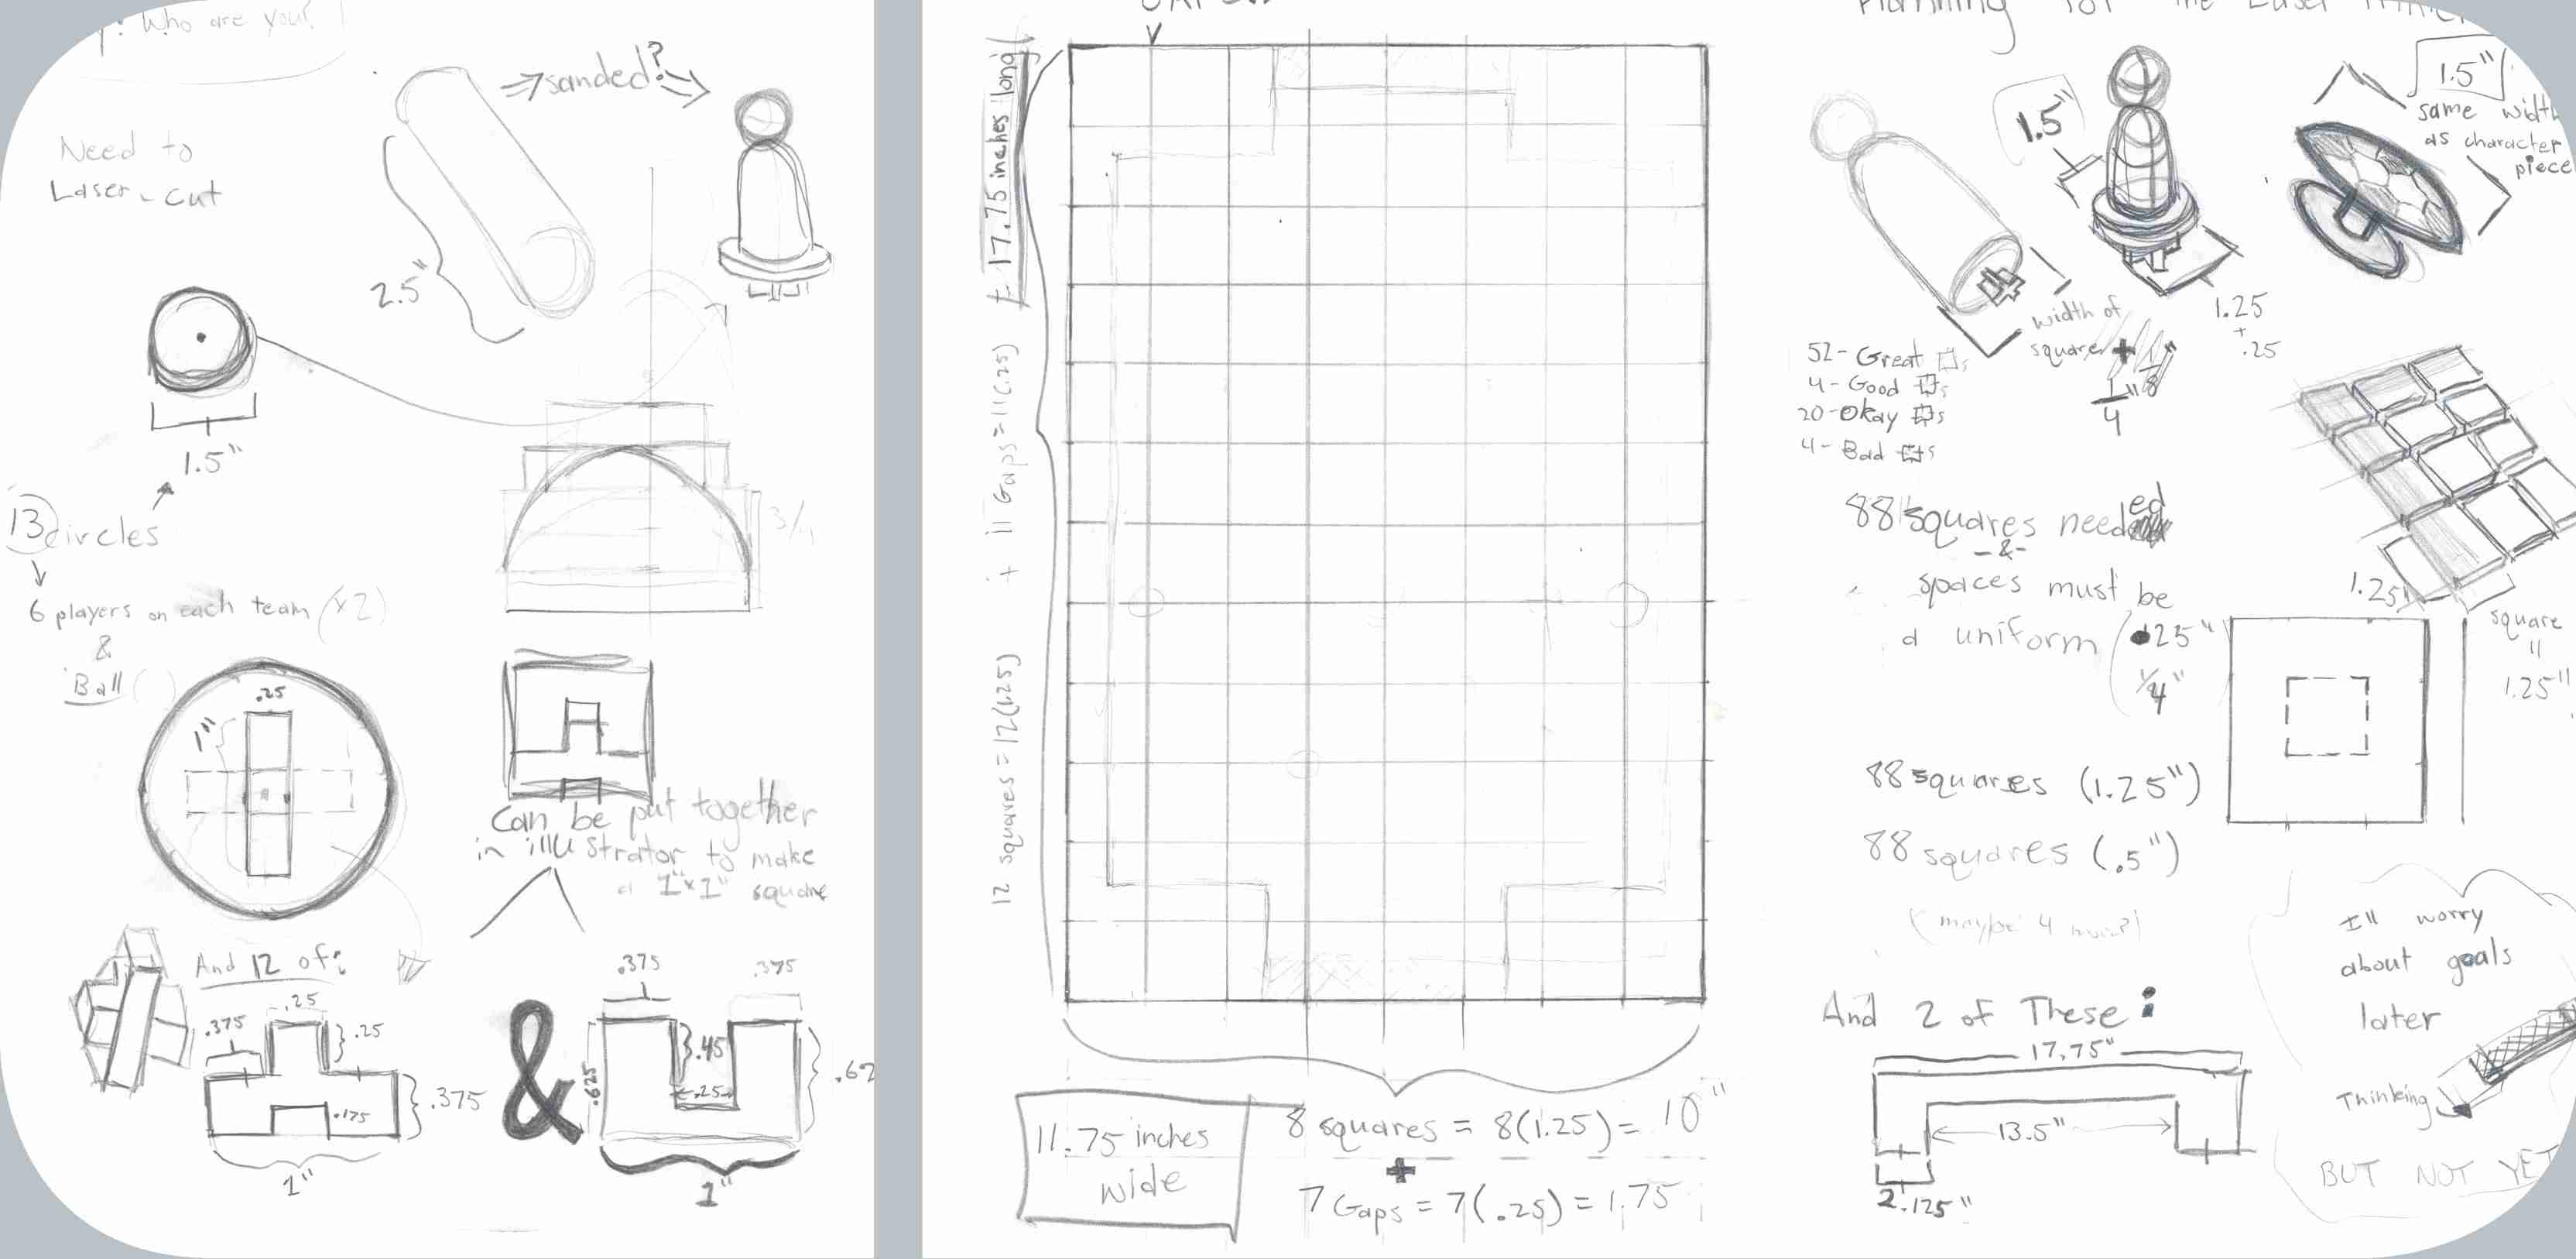 Who are you?
Need to
Laser-cut
⇒ sanded? ⇒
2.5"
1.5"
13 circles
6 players on each team (x2)
&
Ball
3/4
.25
1"
Can be put together
in illustrator to make
a 1"x1" square
And 12 of:
.25
.375
.25
.175
.375
1"
&
.375
.375
.45
.625
.25
.62
1"
17.75 inches long
12 squares = 12(1.25) + 11 Gaps = 11(.25)
11.75 inches
wide
8 squares = 8(1.25) = 10"
+
7 Gaps = 7(.25) = 1.75
Planning for the Laser
1.5"
1.5"
same width
as character
piece
width of
square +
1/8"
1/4"
1.25
+
.25
52- Great □s
4- Good □s
20- Okay □s
4- Bad □s
88 squares needed
-&-
spaces must be
a uniform
.25"
1/4"
1.25
square
=
1.25"
88 squares (1.25")
88 squares (.5")
(maybe 4 more?)
And 2 of These:
17.75"
13.5"
2.125"
I'll worry
about goals
later
Thinking
BUT NOT YET